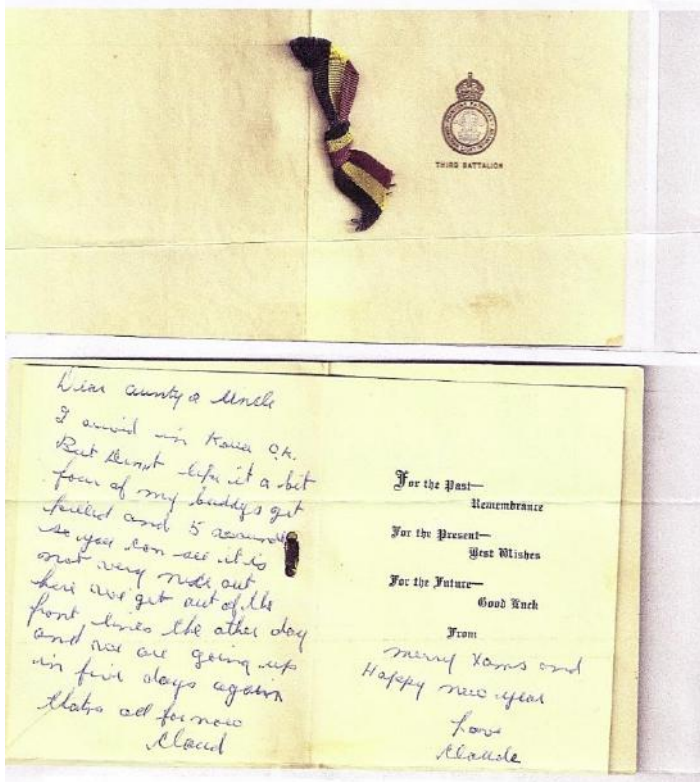 THIRD BATTALION
Dear aunty & Uncle
I arrivid in Korea O.K.
But dont life it a bit
four of my buddys got
killed and 5
so you can see it is
not very nice out
here we get out of the
front lines the other day
and we are going up
in five days again
thats all for now
Claud
For the Past—
Remembrance
For the Present—
Best Wishes
For the Future—
Good Luck
From
merry Xams and
Happy new year
Love
Claude